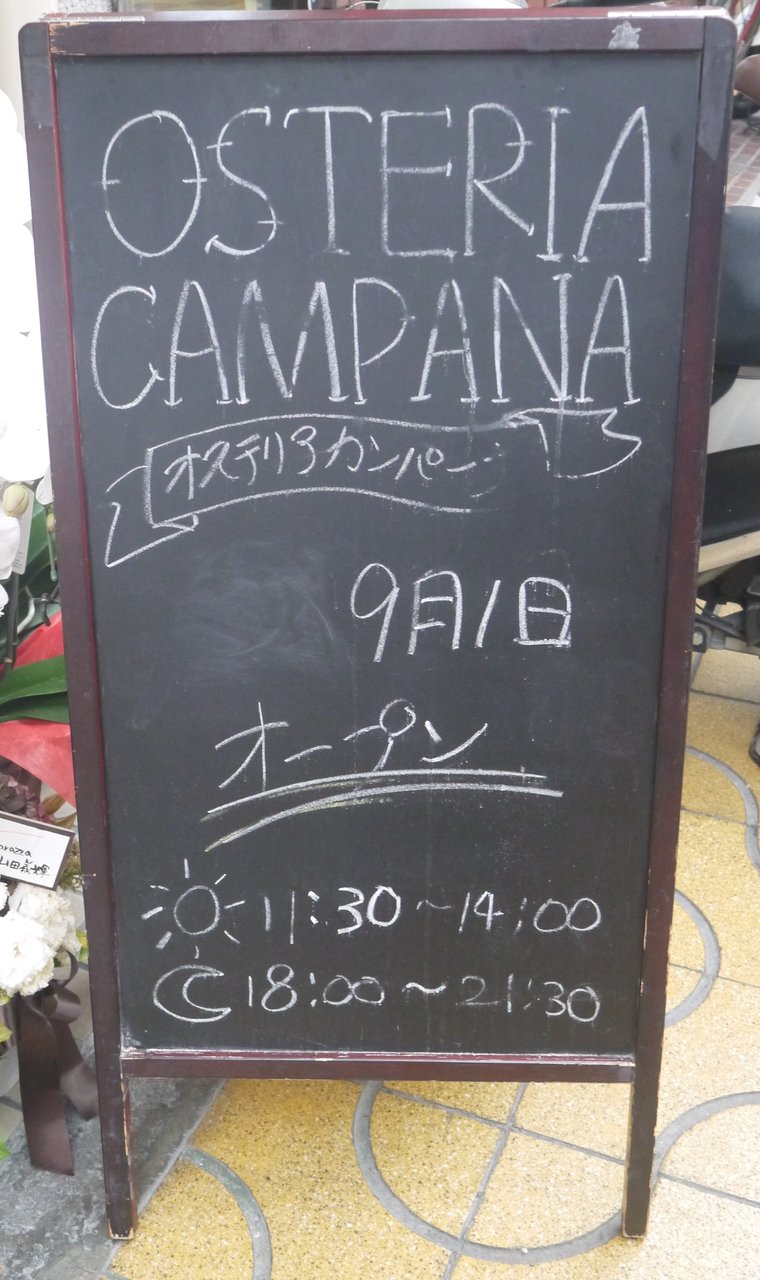 OSTERIA
CAMPANA
オステリアカンパーニ
9月1日
オープン
11:30~14:00
18:00~21:30
山田義輝